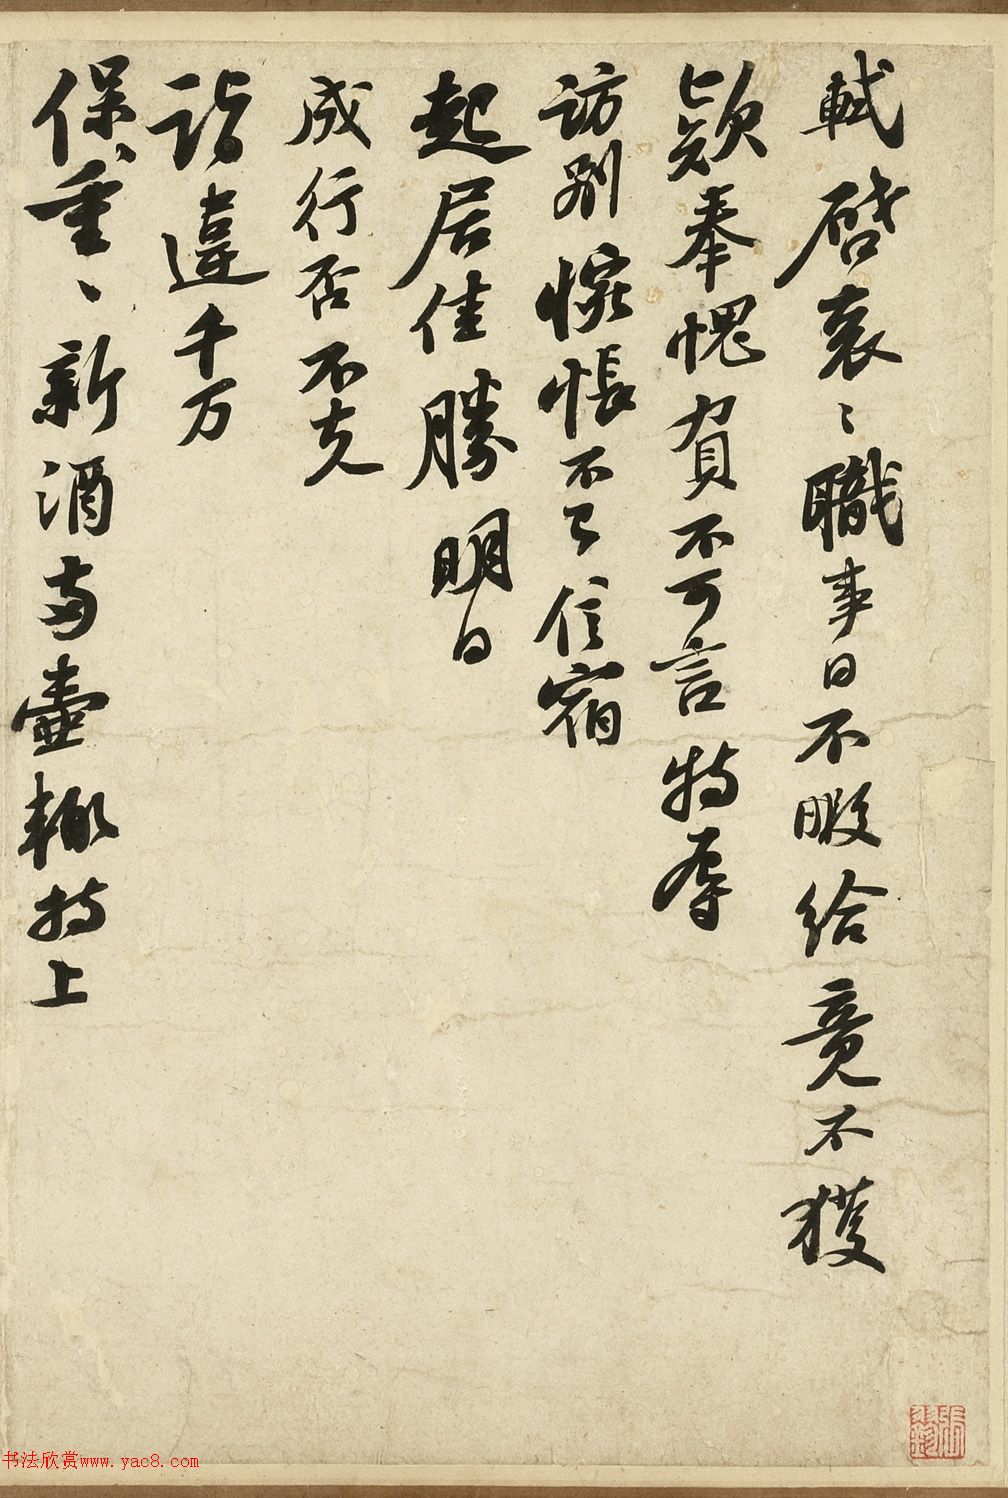 軾啓衮〻職事日不暇給竟不獲
款奉愧負不可言特辱
訪別惋悵不已信宿
起居佳勝明日
成行否不克
詣違千万
保重〻新酒两壶輙持上
书法欣赏www.yac8.com